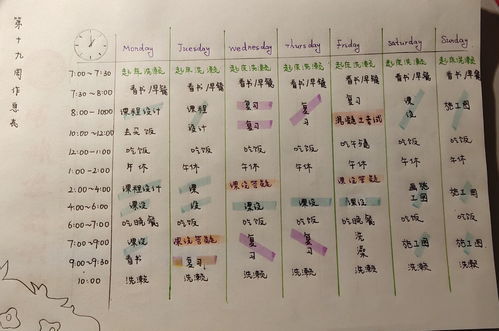 第十九周作息表
Monday Tuesday Wednesday Thursday Friday Saturday Sunday
7:00~7:30 起床洗漱 起床洗漱 起床洗漱 起床洗漱 起床洗漱 起床洗漱 起床洗漱
7:30~8:00 看书/早餐 看书/早餐 看书/早餐 看书/早餐 看书/早餐 看书/早餐 看书/早餐
8:00~10:00 课程设计 课程设计 复习 复习 复习 课设 施工图
10:00~12:00 去买饭 复习 混凝土考试
12:00~1:00 吃饭 吃饭 吃饭 吃饭 吃午餐 吃饭 吃饭
1:00~2:00 午休 午休 午休 午休 午休 午休 午休
2:00~4:00 课程设计 课设 课设答疑 课设 课设答疑 施工图 施工图
4:00~6:00 课设 课设 课设
6:00~7:00 吃晚餐 吃饭 吃饭 吃饭 吃晚餐 吃饭 吃饭
7:00~9:00 课设 课设答疑 复习 复习 洗澡 施工图 施工图
9:00~9:30 看书 复习
10:00 洗漱 洗漱 洗漱 洗漱 洗漱 洗漱 洗漱